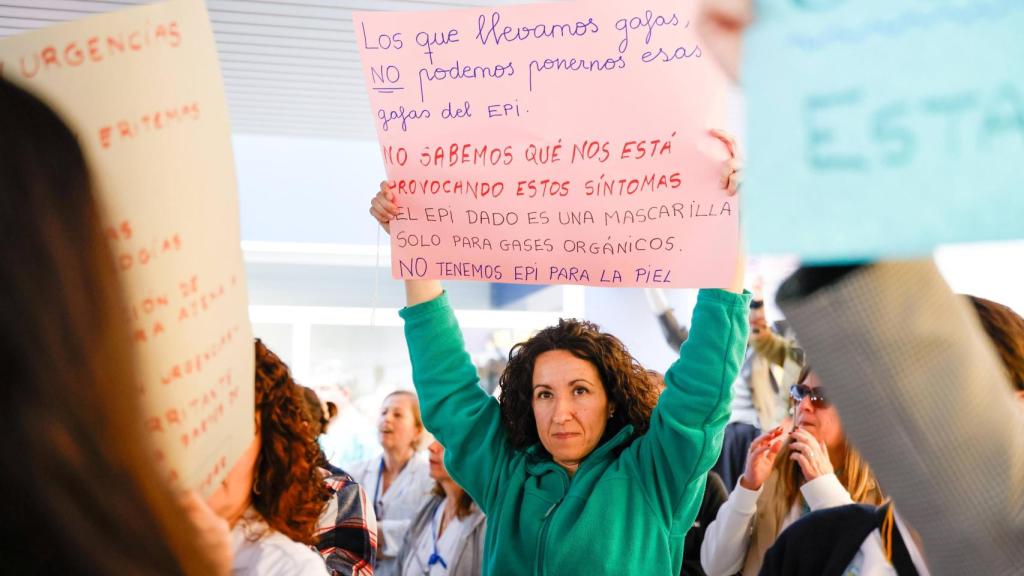 URGENCIAS
ERITEMAS
DE
ATEN
URGENCIA
Los que llevamos gafas,
NO podemos ponernos esas
gafas del EPI.
NO SABEMOS QUÉ NOS ESTÁ
PROVOCANDO ESTOS SÍNTOMAS
EL EPI DADO ES UNA MASCARILLA
SOLO PARA GASES ORGÁNICOS.
NO TENEMOS EPI PARA LA PIEL
ESTA